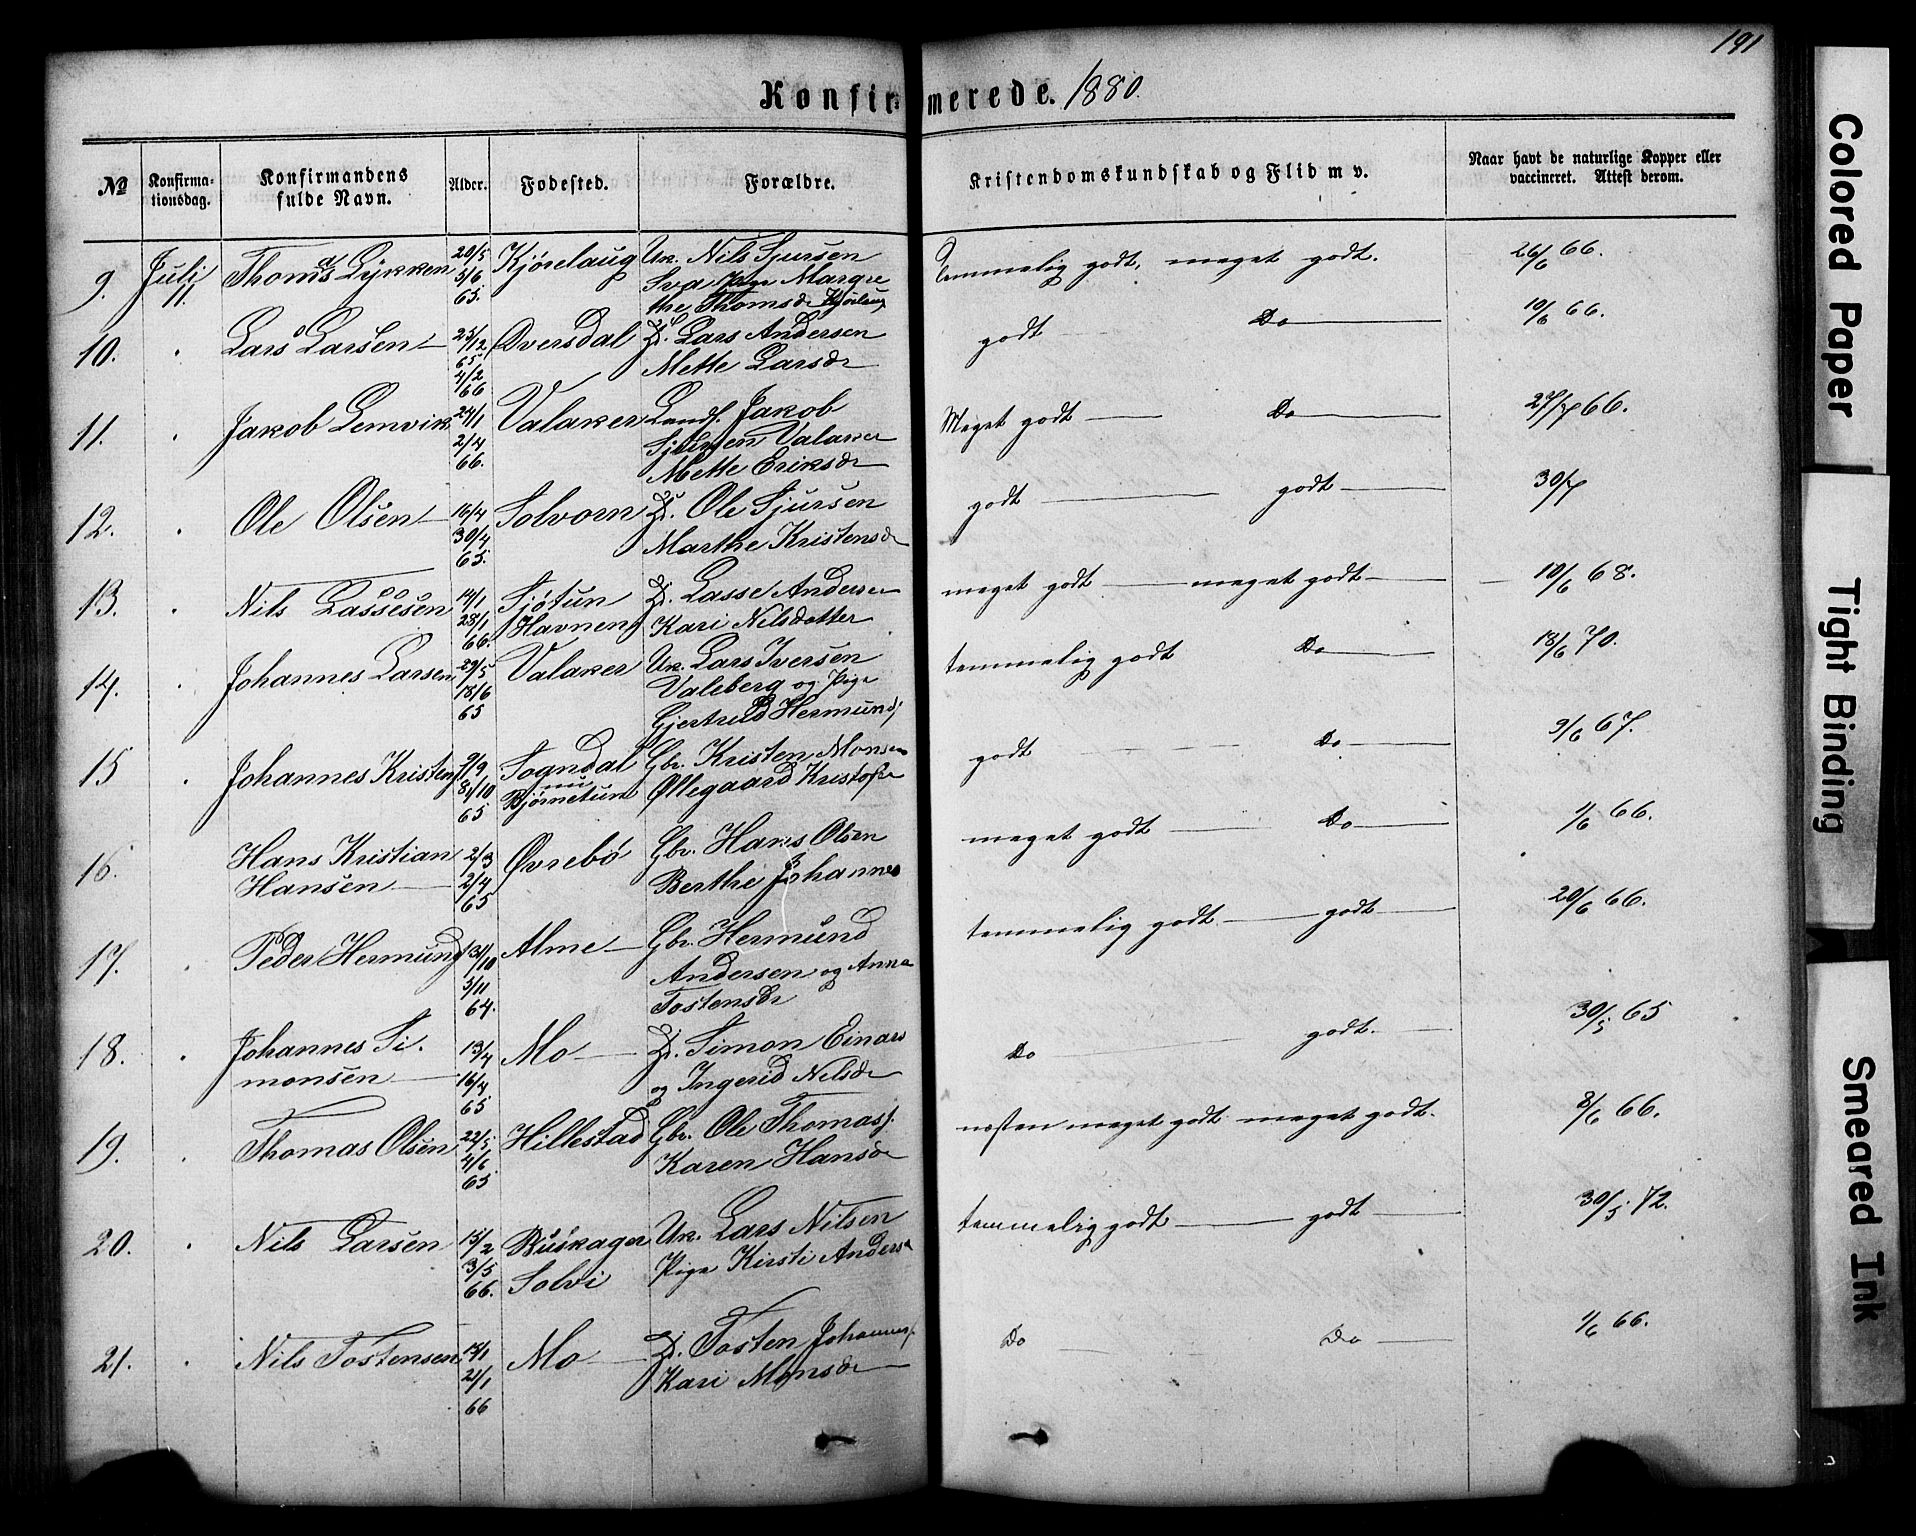 191
Konfirmerede. 1880.
№
Konfirmationsdag.
Konfirmandens fulde Navn.
Alder.
Fødested.
Forældre.
Kristendomskundskab og Flid m v.
Naar havt de naturlige Kopper eller vaccineret. Attest derom.
9. Juli 11. Thomas Lykken 20/5 5/6 65. Kjørelaug Uk. Nils Sjursen
Margrethe Thomsdr Kjørlaug
temmelig godt, meget godt. 26/6 66.
10. " Lars Larsen 25/12 65 4/2 66 Øversdal Ds. Lars Andersen
Mette Larsdr
godt Do 10/6 66.
11. " Jakob Lemvik 24/1 2/4 66. Valaker Landh. Jakob
Valaker
Mette Eriksdr
Meget godt Do 27/7 66.
12. " Ole Olsen 16/4 30/4 65. Solvorn Ds. Ole Sjursen
Marthe Kristensdr
godt godt 30/7
13. " Nils Lassesen 14/1 28/1 66. Sjøtun Havnen Ds. Lasse Andersen
Kari Nilsdotter
meget godt meget godt 10/6 68.
14. " Johannes Larsen 29/5 18/6 65 Valaker Uk. Lars Iversen
Valeberg og Pige
Gjertrud Hermunds
temmelig godt Do 18/6 70.
15 " Johannes Kristens 65 Sogndal nu Bjørnetun Gbr. Kristen Monsen
Øllegaard Kristofr
godt Do 9/6 67.
16. Hans Kristian Hansen 2/3 2/4 65 Øvrebø Gbr. Hans Olsen
Berthe Johannes
meget godt Do 1/6 66.
17. " Peder Hermunds 13/10 5/11 64. Alme Gbr. Hermund
Andersen og Anna
Tostensdr
temmelig godt godt 20/6 66.
18. " Johannes Simonsen 13/4 16/4 65 Mo Ds. Simon Einars
og Ingerid Nelsdr
Do godt. 30/5 65
19. " Thomas Olsen 22/5 4/6 65 Hillestad Gbr. Ole Thomass.
Karen Hansdr
næsten meget godt meget godt. 8/6 66.
20. " Nils Larsen 15/2 3/5 66. Buskager Solvi Uk. Lars Nilsen
Pige Kirsti Anders
temmelig godt godt 30/5 72.
21. " Nils Tostensen 18/1 21/1 66 Mo Ds. Tosten Johannes
Kari Monsdr
Do Do 1/6 66.
Colored Paper
Tight Binding
Smeared Ink